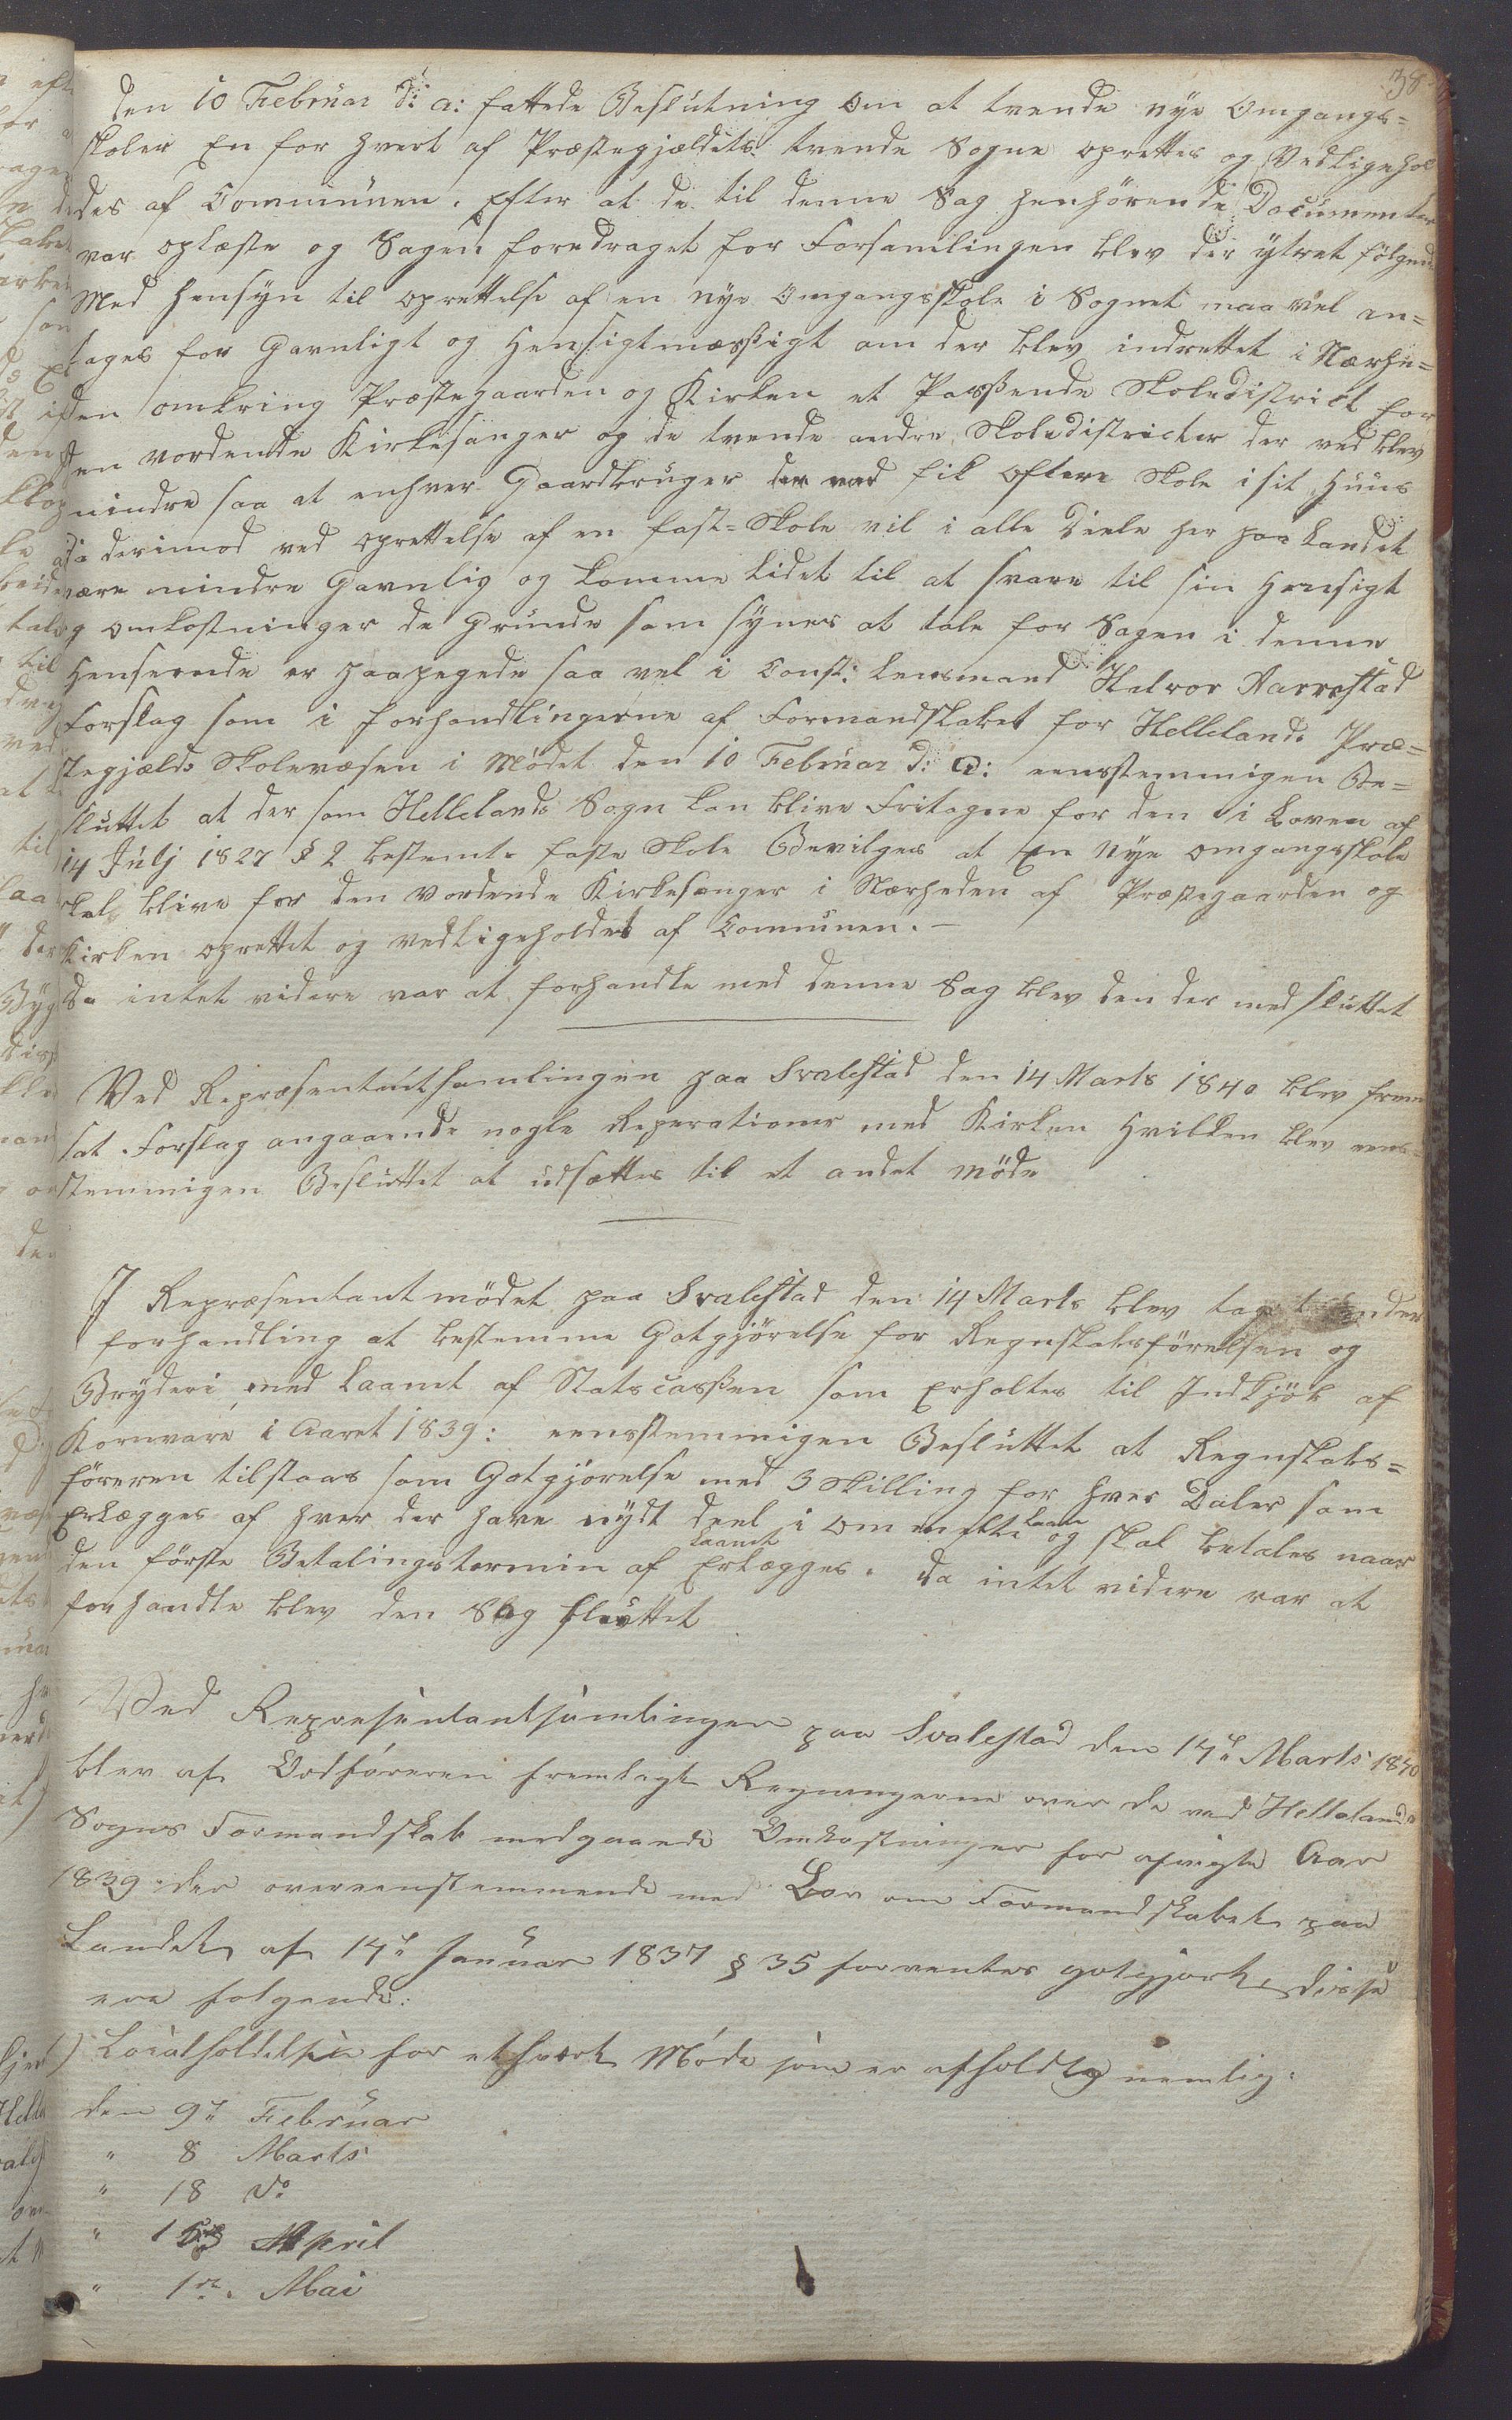 38
den 10 Februar d: a: fattede Beslutning om at tvende nye Omgangs=
skoler En for hvert af Præstegjældets tvende Sogne oprettes og Vedligehol
dedes af Communen. Efter at de til denne Sag henhörende Documenter
var oplæste og Sagen foredraget for Forsamlingen blev der ytret fölgende
Med Hensyn til oprettelse af en nye Omgangsskole i Sognet maa vel an=
tages for Gavnligt og Hensigtmæssigt om der blev indrettet i Nærhe=
den omkring Præstegaarden og Kirken et Passende Skoledistrict for
den vordende Kirkesanger og de tvende andre Skoledistricter der ved blev
mindre saa at enhver Gaardbruger der ved fik oftere Skole i sit Huus
da derimod ved oprettelse af en fast=Skole vil i alle Deele her paa Landet
være mindre Gavnlig og komme lidet til at svare til sin Hensigt
og omkostninger de Grunde som synes at tale for Sagen i denne
Henseende er paapegede saa vel i Const: Lensmand Halvor Aarrestad
Forslag som i Forhandlingerne af Formandskabet for Hellelands Præ=
stegjælds Skolevæsen i Mödet den 10 Februar d: a: eensstemmigen Be=
sluttet at der som Hellelands Sogn kan blive Fritagne for den i Loven af
14 Julj 1827 § 2 bestemte faste Skole Bevilges at En Nye omgangsskole
skal blive for den vordende Kirkesanger i Nærheden af Præstegaarden og
Kirken oprettet og vedligeholdet af Communen. —
Da intet videre var at forhandle med denne Sag blev den der med sluttet
Ved Repræsentantsamlingen paa Svalestad den 14 Marts 1840 blev frem
sat Forslag angaaende nogle Reperationer med Kirken Hvilken blev eens=
stemmigen Besluttet at udsættes til et andet möde
I Repræsentantmödet paa Svalestad den 14 Marts blev taget under
forhandling at bestemme Gotgjörelse for Regnskabsförelsen og
Bryderi med Laanet af Statscassen som Erholtes til Indkjöb af
Kornvare i Aaret 1839: eensstemmigen Besluttet at Regnskabs=
föreren tilstaas som Gotgjörelse med 3 Skilling for hver Daler som
Erlægges af hver der have nydt deel i omme[l]te Laan og skal betales naar
den förste Betalingstermin af Laanet Erlægges. da intet videre var at
forhandle blev den Sag sluttet
Ved Repræsentantsamlingen paa Svalestad den 14de Marts 1840
blev af Ordföreren fremlagt Regningerne over de ved Hellelands
Sogns Formandskab medgaaende Omkostninger for afvigte Aar
1839 der overeensstemmende med Lov om Formandskabet paa
Landet af 14de Januar 1837 § 35 forventes gotgjort, disse
ere folgende:
1) Localholdelsen for ethvert Möde som er afholdt nemlig:
den 9de Februar
" 8 Marts
" 18 do
" April
" 1ste Mai